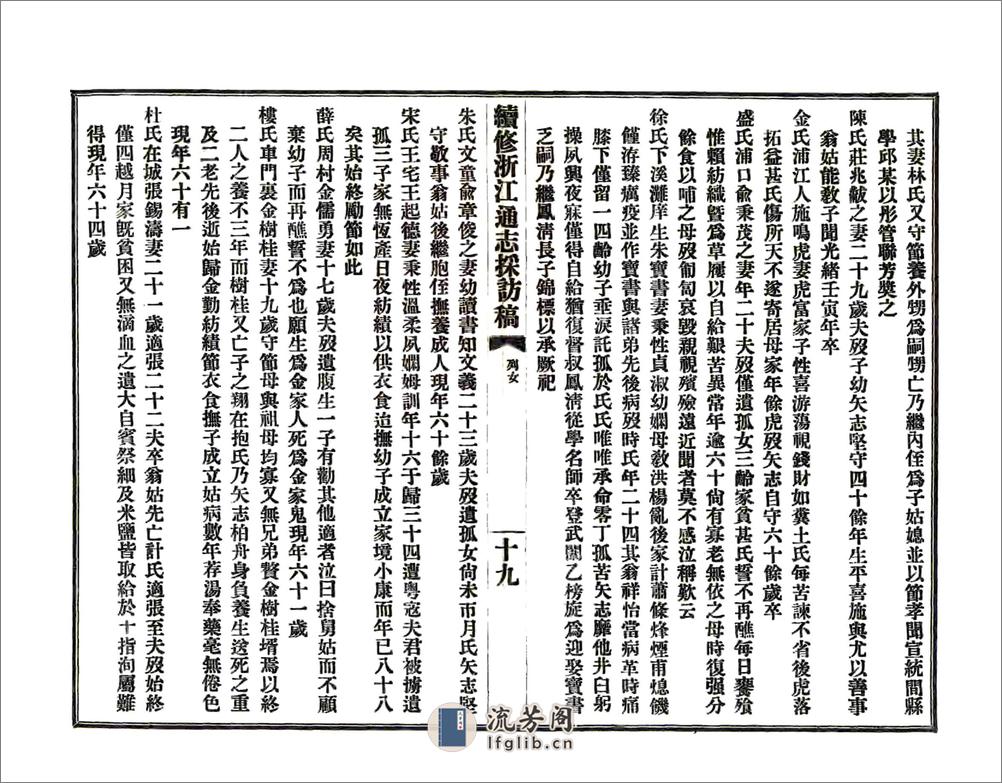 其妻林氏又守節養外甥爲嗣甥亡乃繼內侄爲子姑媳並以節孝聞宣統間縣
學邱某以彤管聯芳獎之
陳氏莊兆黻之妻二十九歲夫歿子幼矢志堅守四十餘年生平喜施與尤以善事
翁姑能敎子聞光緒壬寅年卒
金氏浦江人施鳴虎妻虎富家子性喜游蕩視錢財如糞土氏每苦諫不省後虎落
拓益甚氏傷所天不遂寄居母家年餘虎歿矢志自守六十餘歲卒
盛氏浦口俞秉茂之妻年二十夫歿僅遺孤女三齡家貧甚氏誓不再醮每日饔飱
惟賴紡織曁爲草履以自給艱苦異常年逾六十尙有寡老無依之母時復强分
餘食以哺之母歿匍匐哀毀親視殯殮遠近聞者莫不感泣稱歎云
徐氏下溪灘庠生朱寶書妻秉性貞淑幼嫻母敎洪楊亂後家計蕭條烽煙甫熄饑
僅洊臻癘疫並作寶書與諸弟先後病歿時氏年二十四其翁祥怡當病革時痛
膝下僅留一四齡幼子垂淚託孤於氏氏唯唯承命零丁孤苦矢志靡他井臼躬
操夙興夜寐僅得自給猶復督叔鳳淸從學名師卒登武闈乙榜旋爲迎娶寶書
乏嗣乃繼鳳淸長子錦標以承厥祀
續修浙江通志採訪稿
列女
十九
朱氏文童俞章俊之妻幼讀書知文義二十三歲夫歿遺孤女尙未帀月氏矢志堅
守敬事翁姑後繼胞侄撫養成人現年六十餘歲
宋氏王宅王起德妻秉性溫柔夙嫻姆訓年十六于歸三十四遭粤寇夫君被擄遺
孤三子家無恆產日夜紡績以供衣食迨撫幼子成立家境小康而年已八十八
矣其始終勵節如此
薛氏周村金儒勇妻十七歲夫歿遺腹生一子有勸其他適者泣曰捨舅姑而不顧
棄幼子而再醮誓不爲也願生爲金家人死爲金家鬼現年六十一歲
樓氏車門裏金樹桂妻十九歲守節母與祖母均寡又無兄弟贅金樹桂壻焉以終
二人之養不三年而樹桂又亡子之翔在抱氏乃矢志柏舟身負養生送死之重
及二老先後逝始歸金勤紡績節衣食撫子成立姑病數年荐湯奉藥毫無倦色
現年六十有一
杜氏在城張錫濤妻二十一歲適張二十二夫卒翁姑先亡計氏適張至夫歿始終
僅四越月家旣貧困又無滴血之遺大自賓祭細及米鹽皆取給於十指洵屬難
得現年六十四歲
流芳阁
lfglib.cn